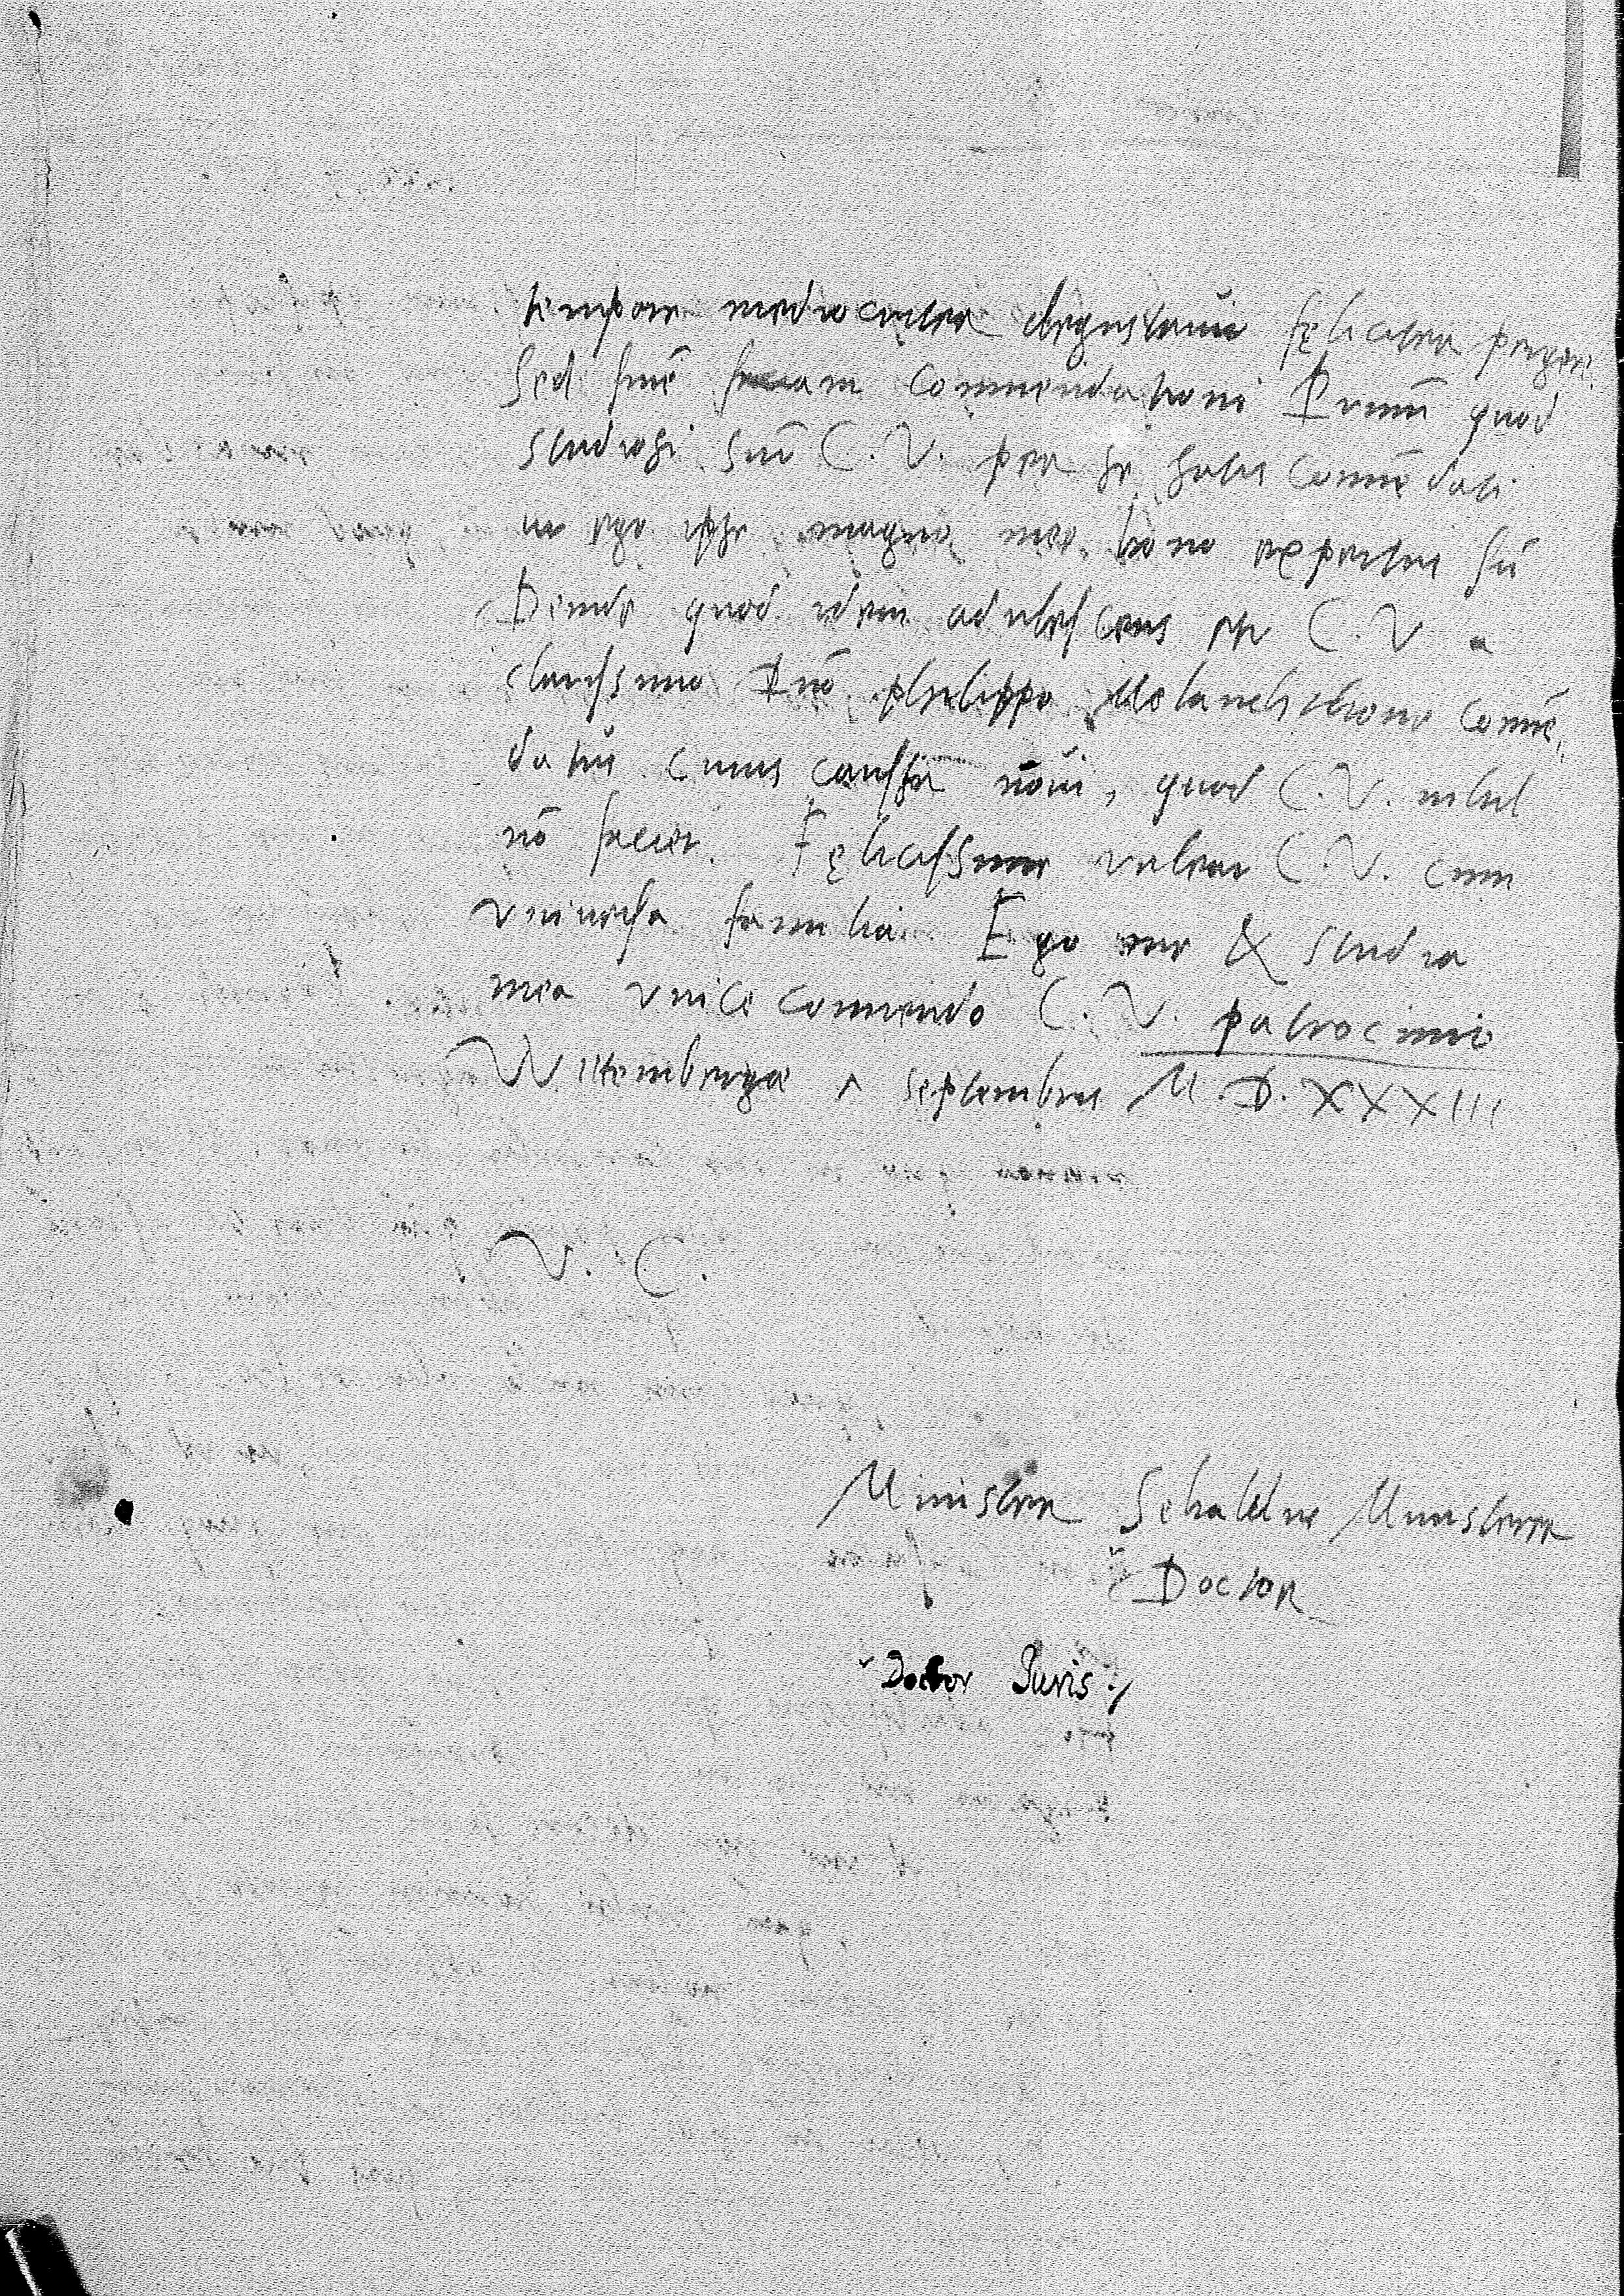 tempore mediocriter degustauit fęliciter pergere.
Sed finē faciam Commendationi Primū quod
studiosi sūt C. V. per se satis Commēdati
ut ego ipse magno meo bono expertus sū
Deinde quod idem adulescens est C. V a
clarissimo Dnō philippo Melanchthone Commē,
datus cuius caussa nōui, quod C. V. nihil
nō faciet. Fęlicissime valeat C. V. cum
vniuersa familia. Ego me & studia
mea vnice commendo C. V. patrocinio
Wittembergae septembris M. D. XXXIII
V. C.
Minister Sebaldus Munsterer
Doctor
Doctor Juris